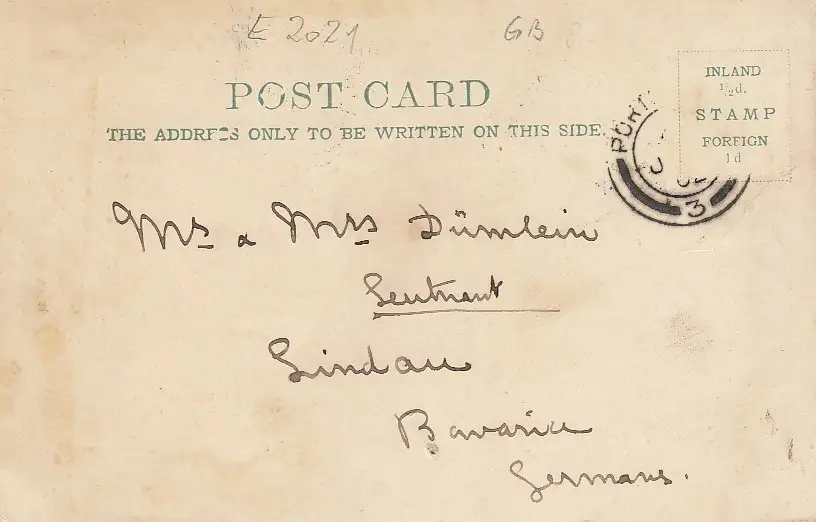 E 2021 GB
POST CARD
THE ADDRESS ONLY TO BE WRITTEN ON THIS SIDE.
INLAND
½d.
STAMP
FOREIGN
1d
PORT
3
Mr & Mrs Dümlein
Leutnant
Lindau
Bavaria
Germany.